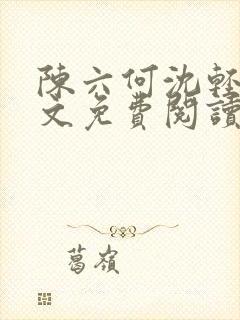 陳六何沈輕
文免費閱讀
葛嶺